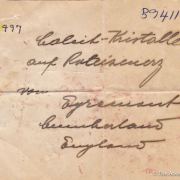 B9411
997
Calcit-Kristalle
auf Roteisenerz
von
Egremont
Cumberland
England